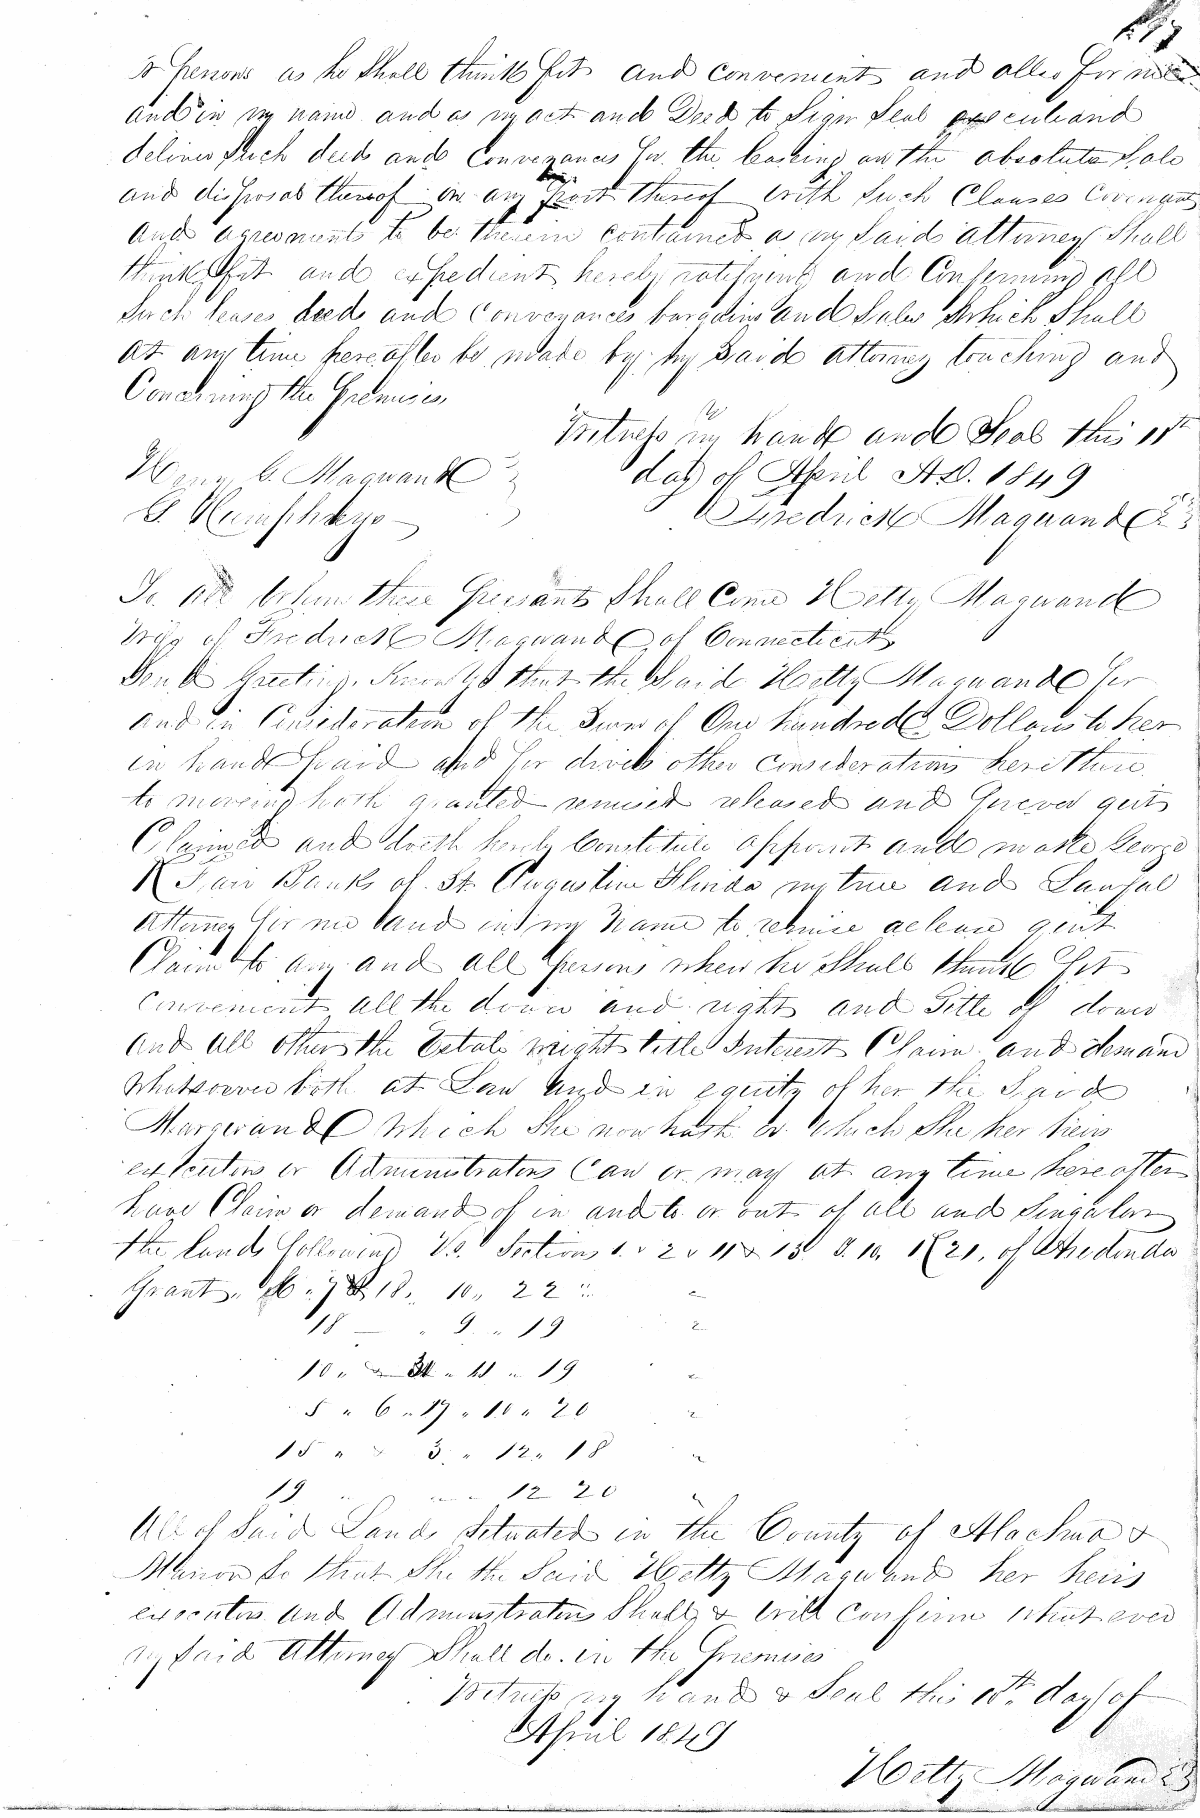 or persons as he Shall think fit and convenient and allso for me
and in my name and as my act and Deed to Sign Seal execute and
deliver Such deeds and Conveyances for the leaseing or the absolute Sale
and disposal thereof or any part thereof with Such Clauses Covenants
and agreements to be therein contained as my Said attorney Shall
think fit and expedient hereby ratifying and Confirming all
Such leases deeds and Conveyances bargains and Sales which Shall
at any time hereafter be made by my Said attorney touching and
Concerning the Premises
Witness my hand and Seal this 11th
Henry G. Maqwand day of April A.D. 1849
G. Humphreys Fredrick Maqwand
To all whom these Presants Shall Come Hetty Maqwand
Wife of Fredrick Maqwand of Connecticut
Send Greeting. Know Ye that the Said Hetty Maqwand for
and in Consideration of the Sum of One hundred Dollars to her
in hand paid and for divers other considerations here there
to moveing hath granted remised released and forever quit
Claimed and doeth hereby Constitute appoint and make George
R Fair Banks of St. Augustine Florida my true and Lawful
Attorney for me and in my Name to remise release quit
Claim to any and all persons when he Shall think fit
convenient all the dower and right and Title of dower
and all other the Estate right title Interest Claim and demand
whatsoever both at Law and in equity of her the Said
Marqwand which She now hath or which She her heirs
executors or Administrators Can or may at any time hereafter
have Claim or demand of in and to or out of all and Singular
the lands following V.S. Sections 1. & 2 & 11 & 13 T. 10. R 21. of Arredondo
Grant. 6. 7 & 18. 10. 22 "
18 — " 9. " 19 "
10 " & 31 " 11 " 19 "
5 " 6 " 17 " 10 " 20 "
15 " & 3 " 12 " 18 "
19 " " 12 20 "
All of Said Lands Situated in the County of Alachua &
Marion So that She the Said Hetty Maqwand her heirs
executors and Administrators Shall & will confirm what ever
my Said Attorney Shall do in the Premises
Witness my hand & Seal this 10th day of
April 1849
Hetty Maqwand